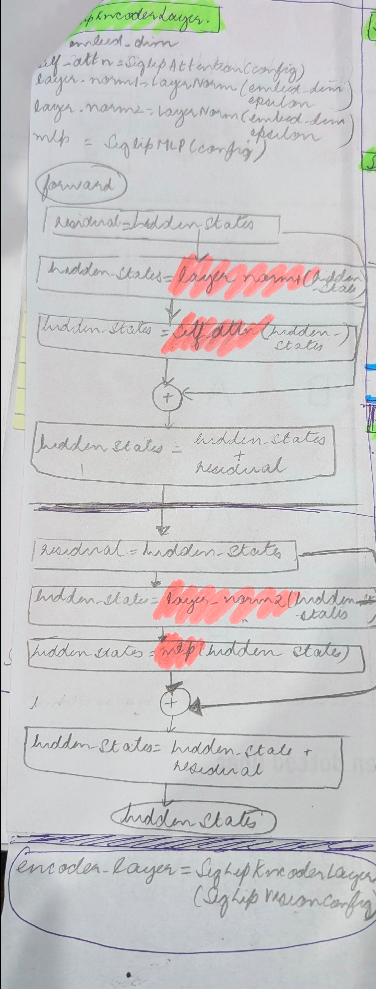 pEncoderLayer.
embed_dim
self_attn = SiglipAttention(config)
layer.norm1 = LayerNorm (embed_dim
epsilon)
layer.norm2 = LayerNorm (embed_dim
epsilon)
mlp = SiglipMLP (config)
forward
residual = hidden_states
hidden_states = layer norm1 (hidden
state)
hidden_states = self attn (hidden_
states)
+
hidden states = hidden_states
+
residual
residual = hidden_states
hidden_state = layer_norm2 (hidden
states
hidden states = mlp (hidden states)
+
hidden_states = hidden_state +
residual
hidden states
encoder_layer = SiglipEncoderLayer
(SiglipVisionConfig)